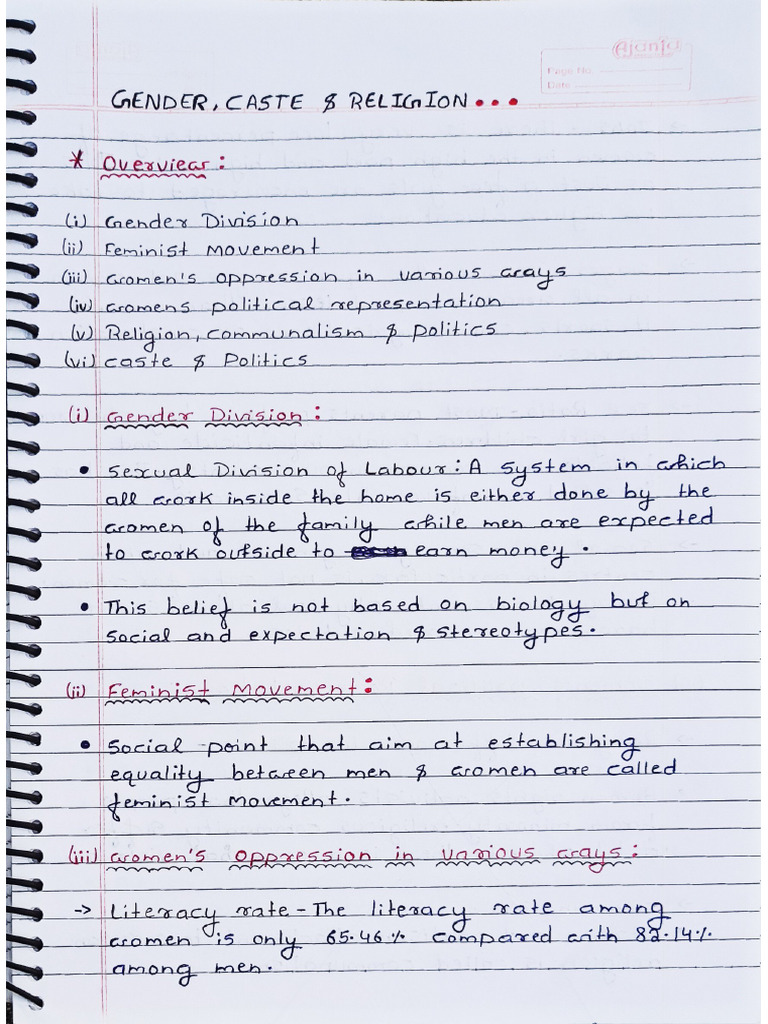 Ajanta
Page No.
Date
GENDER, CASTE & RELIGION...
* Overview:
(i) Gender Division
(ii) Feminist Movement
(iii) women's oppression in various ways
(iv) womens political representation
(v) Religion, communalism & politics
(vi) caste & Politics
(i) Gender Division:
• Sexual Division of Labour: A system in which
all work inside the home is either done by the
women of the family while men are expected
to work outside to earn money.
• This belief is not based on biology but on
social and expectation & stereotypes.
(ii) Feminist Movement:
• Social point that aim at establishing
equality between men & women are called
feminist movement.
(iii) women's oppression in various ways:
-> Literacy rate - The literacy rate among
women is only 65.46% compared with 82.14%
among men.